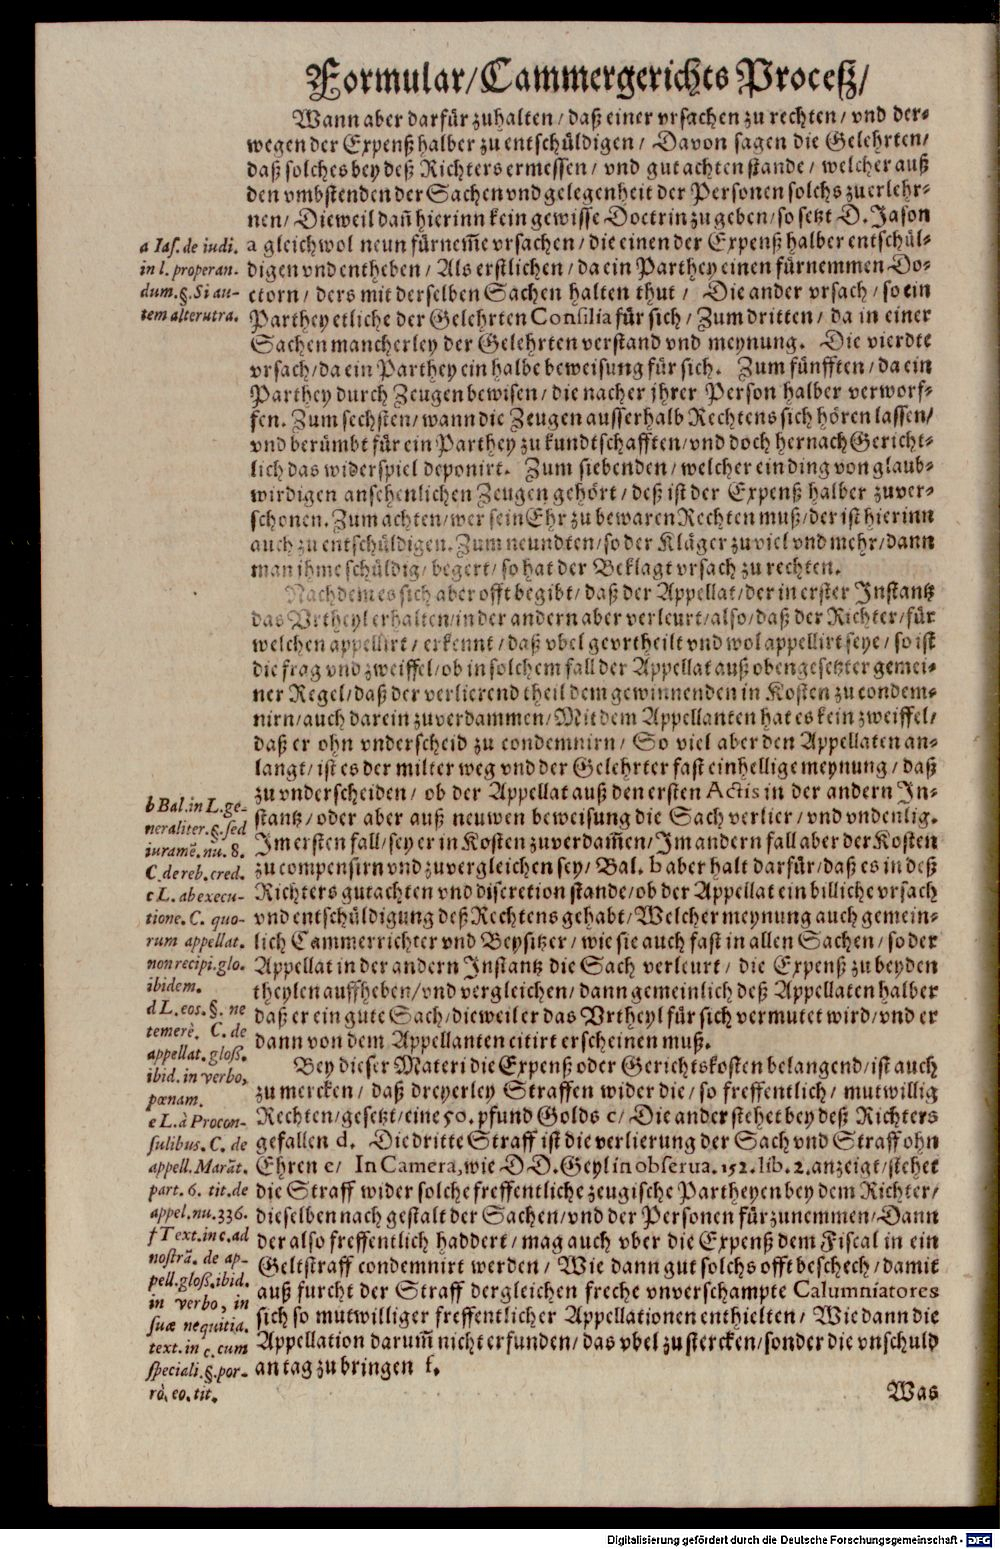 Formular/Cammergerichts Proceß/
Wann aber darfür zuhalten/daß einer vrsachen zu rechten/vnd der-
wegen der Expenß halber zu entschüldigen/ Davon sagen die Gelehrten/
daß solches bey deß Richters ermessen/ vnd gutachten stande/ welcher auß
den vmbstenden der Sachen vnd gelegenheit der Personen solchs zu erlehr-
nen/ Dieweil dañ hierinn kein gewisse Doctrin zu geben/ so setzt D. Jason
a gleichwol neun fürnem̃e vrsachen/ die einen der Expenß halber entschül-
digen vnd entheben/ Als erstlichen/ da ein Parthey einen fürnemmen Do-
ctorn/ ders mit derselben Sachen halten thut/ Die ander vrsach/ so ein
Parthey etliche der Gelehrten Consilia für sich/ Zum dritten/ da in einer
Sachen mancherley der Gelehrten verstand vnd meynung. Die vierdte
vrsach/da ein Parthey ein halbe beweisung für sich. Zum fünfften/da ein
Parthey durch Zeugen bewisen/ die nacher jhrer Person halber verworf-
fen. Zum sechsten/ wann die Zeugen ausserhalb Rechtens sich hören lassen/
vnd berümbt für ein Parthey zu kundtschafften/vnd doch hernach Gericht-
lich das widerspiel deponirt. Zum siebenden/ welcher ein ding von glaub-
wirdigen ansehenlichen Zeugen gehört/ deß ist der Expenß halber zuver-
schonen. Zum achten/ wer sein Ehr zu bewaren Rechten muß/der ist hierinn
auch zu entschüldigen. Zum neundten/so der Kläger zuviel vnd mehr/dann
man ihme schüldig/ begert/ so hat der Beklagt vrsach zu rechten.
Nach dem es sich aber offt begibt/ daß der Appellat/der in erster Instantz
das Vrtheyl erhalten/in der andern aber verleurt/also/daß der Richter/für
welchen appellirt/ erkennt/ daß vbel gevrtheilt vnd wol appellirt seye/ so ist
die frag vnd zweiffel/ob in solchem fall der Appellat auß obengesetzter gemei-
ner Regel/ daß der verlierend theil dem gewinnenden in Kosten zu condem-
nirn/auch darein zuverdammen/Mit dem Appellanten hat es kein zweiffel/
daß er ohn vnderscheid zu condemnirn/ So viel aber den Appellaten an-
langt/ ist es der milter weg vnd der Gelehrter fast einhellige meynung/ daß
zu vnderscheiden/ ob der Appellat auß den ersten Actis in der andern In-
stantz/oder aber auß neuwen beweisung die Sach verlier/ vnd vndenlig.
Im ersten fall/sey er in Kosten zuverdam̃en/Im andern fall aber der Kosten
zu compensirn vnd zuvergleichen sey/ Bal. b aber halt darfür/daß es in deß
Richters gutachten vnd discretion stande/ob der Appellat ein billiche vrsach
vnd entschüldigung deß Rechtens gehabt/Welcher meynung auch gemein-
lich Cammerrichter vnd Beysitzer/ wie sie auch fast in allen Sachen/so der
Appellat in der andern Instantz die Sach verleurt/ die Expenß zu beyden
theylen auffheben/vnd vergleichen/ dann gemeinlich deß Appellaten halber
daß er ein gute Sach/dieweil er das Vrtheyl für sich vermutet wird/vnd er
dann von dem Appellanten citirt erscheinen muß.
Bey dieser Materi die Expenß oder Gerichtskosten belangend/ist auch
zu mercken/ daß dreyerley Straffen wider die/ so freffentlich/ mutwillig
Rechten/gesetzt/eine 50. pfund Golds c/ Die ander stehet bey deß Richters
gefallen d. Die dritte Straff ist die verlierung der Sach vnd Straff ohn
Ehren e/ In Camera, wie D D. Geyl in obserua. 152. lib. 2. anzeigt/stehet
die Straff wider solche freffentliche zeugische Partheyen bey dem Richter/
dieselben nach gestalt der Sachen/vnd der Personen fürzunemmen/Dann
der also freffentlich haddert/ mag auch vber die Expenß dem Fiscal in ein
Geltstraff condemnirt werden/ Wie dann gut solchs offt beschech/damit
auß furcht der Straff dergleichen freche vnverschampte Calumniatores
sich so mutwilliger freffentlicher Appellationen enthielten/ Wie dann die
Appellation darum̃ nicht erfunden/das vbel zu stercken/sonder die vnschuld
an tag zu bringen f.
Was
a Ias. de iudi.
in l. properan.
dum. §. Si au-
tem alterutra.
b Bal. in L. ge-
neraliter. §. sed
iuramẽ. nũ. 8.
C. de reb. cred.
c L. ab execu-
tione. C. quo-
rum appellat.
non recipi. glo.
ibidem.
d L. eos. §. ne
temerè. C. de
appellat. gloß.
ibid. in verbo,
pœnam.
e L. à Procon-
sulibus. C. de
appell. Marãt.
part. 6. tit. de
appel. nu. 336.
f Text. in c. ad
nostrã. de ap-
pell. gloß. ibid.
in verbo, in
suæ nequitia.
text. in c. cum
speciali. §. por-
rò, eo. tit.
Digitalisierung gefördert durch die Deutsche Forschungsgemeinschaft - DFG